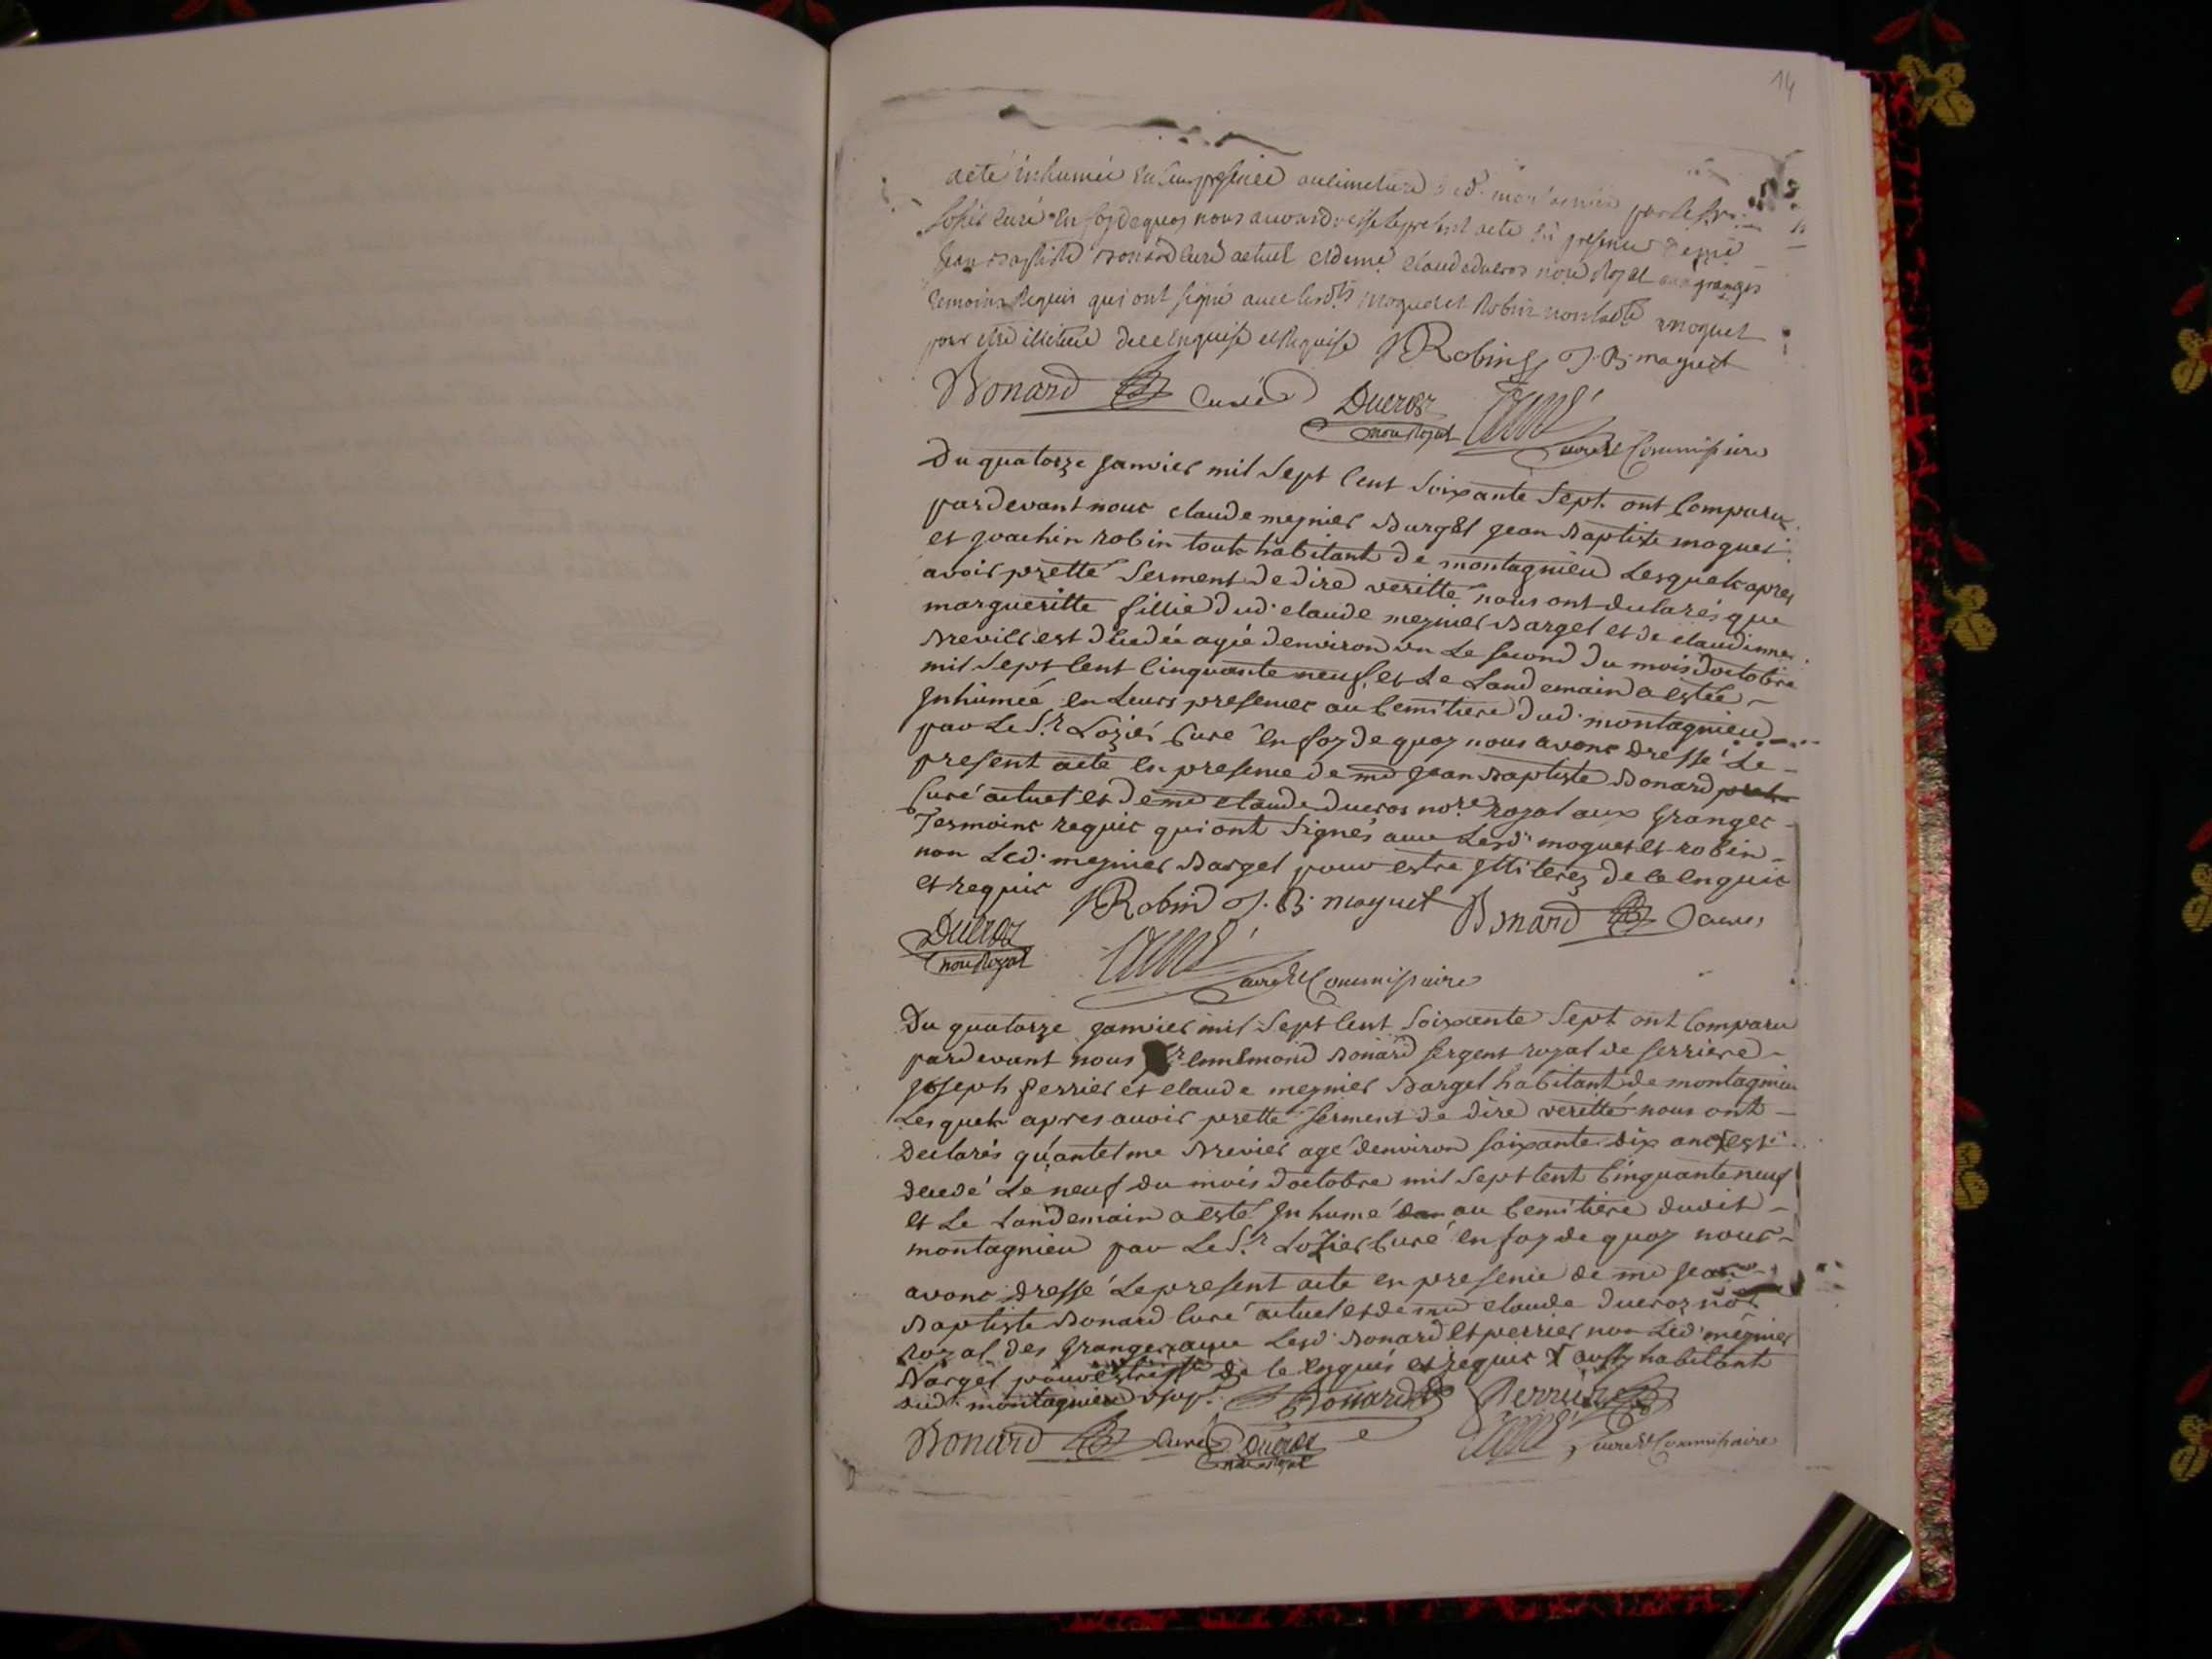 14
acté inhumée en leurs presence au cimetiere dud. montagnieu par le sr.
Losier curé en foy de quoy nous avons dressé le present acte en presence de me
jean Baptiste Bonard curé actuel et de me claude ducros nore Royal aux granges
temoins Requis qui ont signé avec lesdts moguet et Robin non ladte moguet
pour etre illiterée de ce enquise et Requise JRobin J. B. moguet
Bonard Curé Ducros
nore Royal curé et Commissaire
Du quatorze janvier mil Sept Cent Soixante Sept. ont Comparu
pardevant nous claude meynier Bargel jean Baptiste moguet
et joachin robin touts habitants de montagnieu Lesquels apres
avoir pretté Serment de dire veritté nous ont declarés que
margueritte fillie dud. claude meynier Bargel et de claudinne
Brevier est decedée agée denviron un Le second du mois doctobre
mil Sept Cent Cinquante neuf, et Le Landemain a estée -
Inhumée en Leurs presences au Cemitiere dud. montagnieu
par Le S.r Lozier Curé en foy de quoy nous avons dressé Le -
present acte en presence de me jean Baptiste Bonard pretre
Curé actuel et de me claude ducros no.re royal aux Granges -
Tesmoins requis qui ont Signés avec Lesd. moguet et robin -
non Led. meynier Bargel pour estre Illiterez de ce enquis
et requis JRobin J. B. moguet Bonard Curé
Ducros
nore Royal
curé et Commissaire
Du quatorze janvier mil Sept Cent Soixante Sept ont Comparu
pardevant nous Sr ennemond Bonard sergent royal de serriere -
joseph perrier et claude meynier Bargel habitant de montagnieu
Lesquels apres avoir pretté serment de dire veritté nous ont -
Declarés qu'antelme Brevier agé denviron soixante dix ans est
decedé Le neuf du mois doctobre mil Sept Cent Cinquante neuf
et Le Landemain a esté Inhumé dan au Cemitiere dudit -
montagnieu par Le S.r Lozier Curé en foy de quoy nous -
avons dressé Le present acte en presence de me jean
Baptiste Bonard Curé actuel et de me claude ducros nore
royal des Granges avec Lesd. Bonard et perrier non Led. meynier
Bargel pour de ce enquis et requis X aussy habitant
dud. montagnieu Bonard Perrier
Bonard Curé Ducros
nore Royal curé et Commissaire